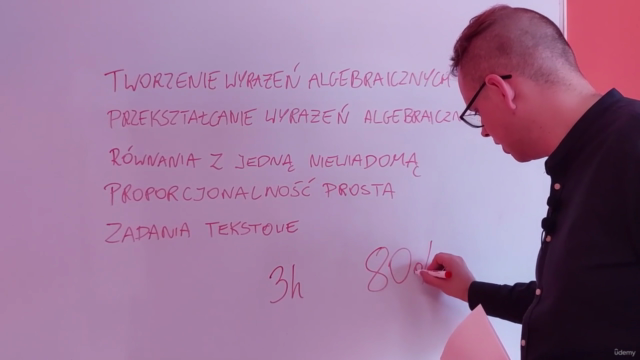 TWORZENIE WYRAŻEŃ ALGEBRAICZNYCH
PRZEKSZTAŁCANIE WYRAŻEŃ
RÓWNANIA Z JEDNĄ NIEWIADOMĄ
PROPORCJONALNOŚĆ PROSTA
ZADANIA TEKSTOWE
3h 80
udemy